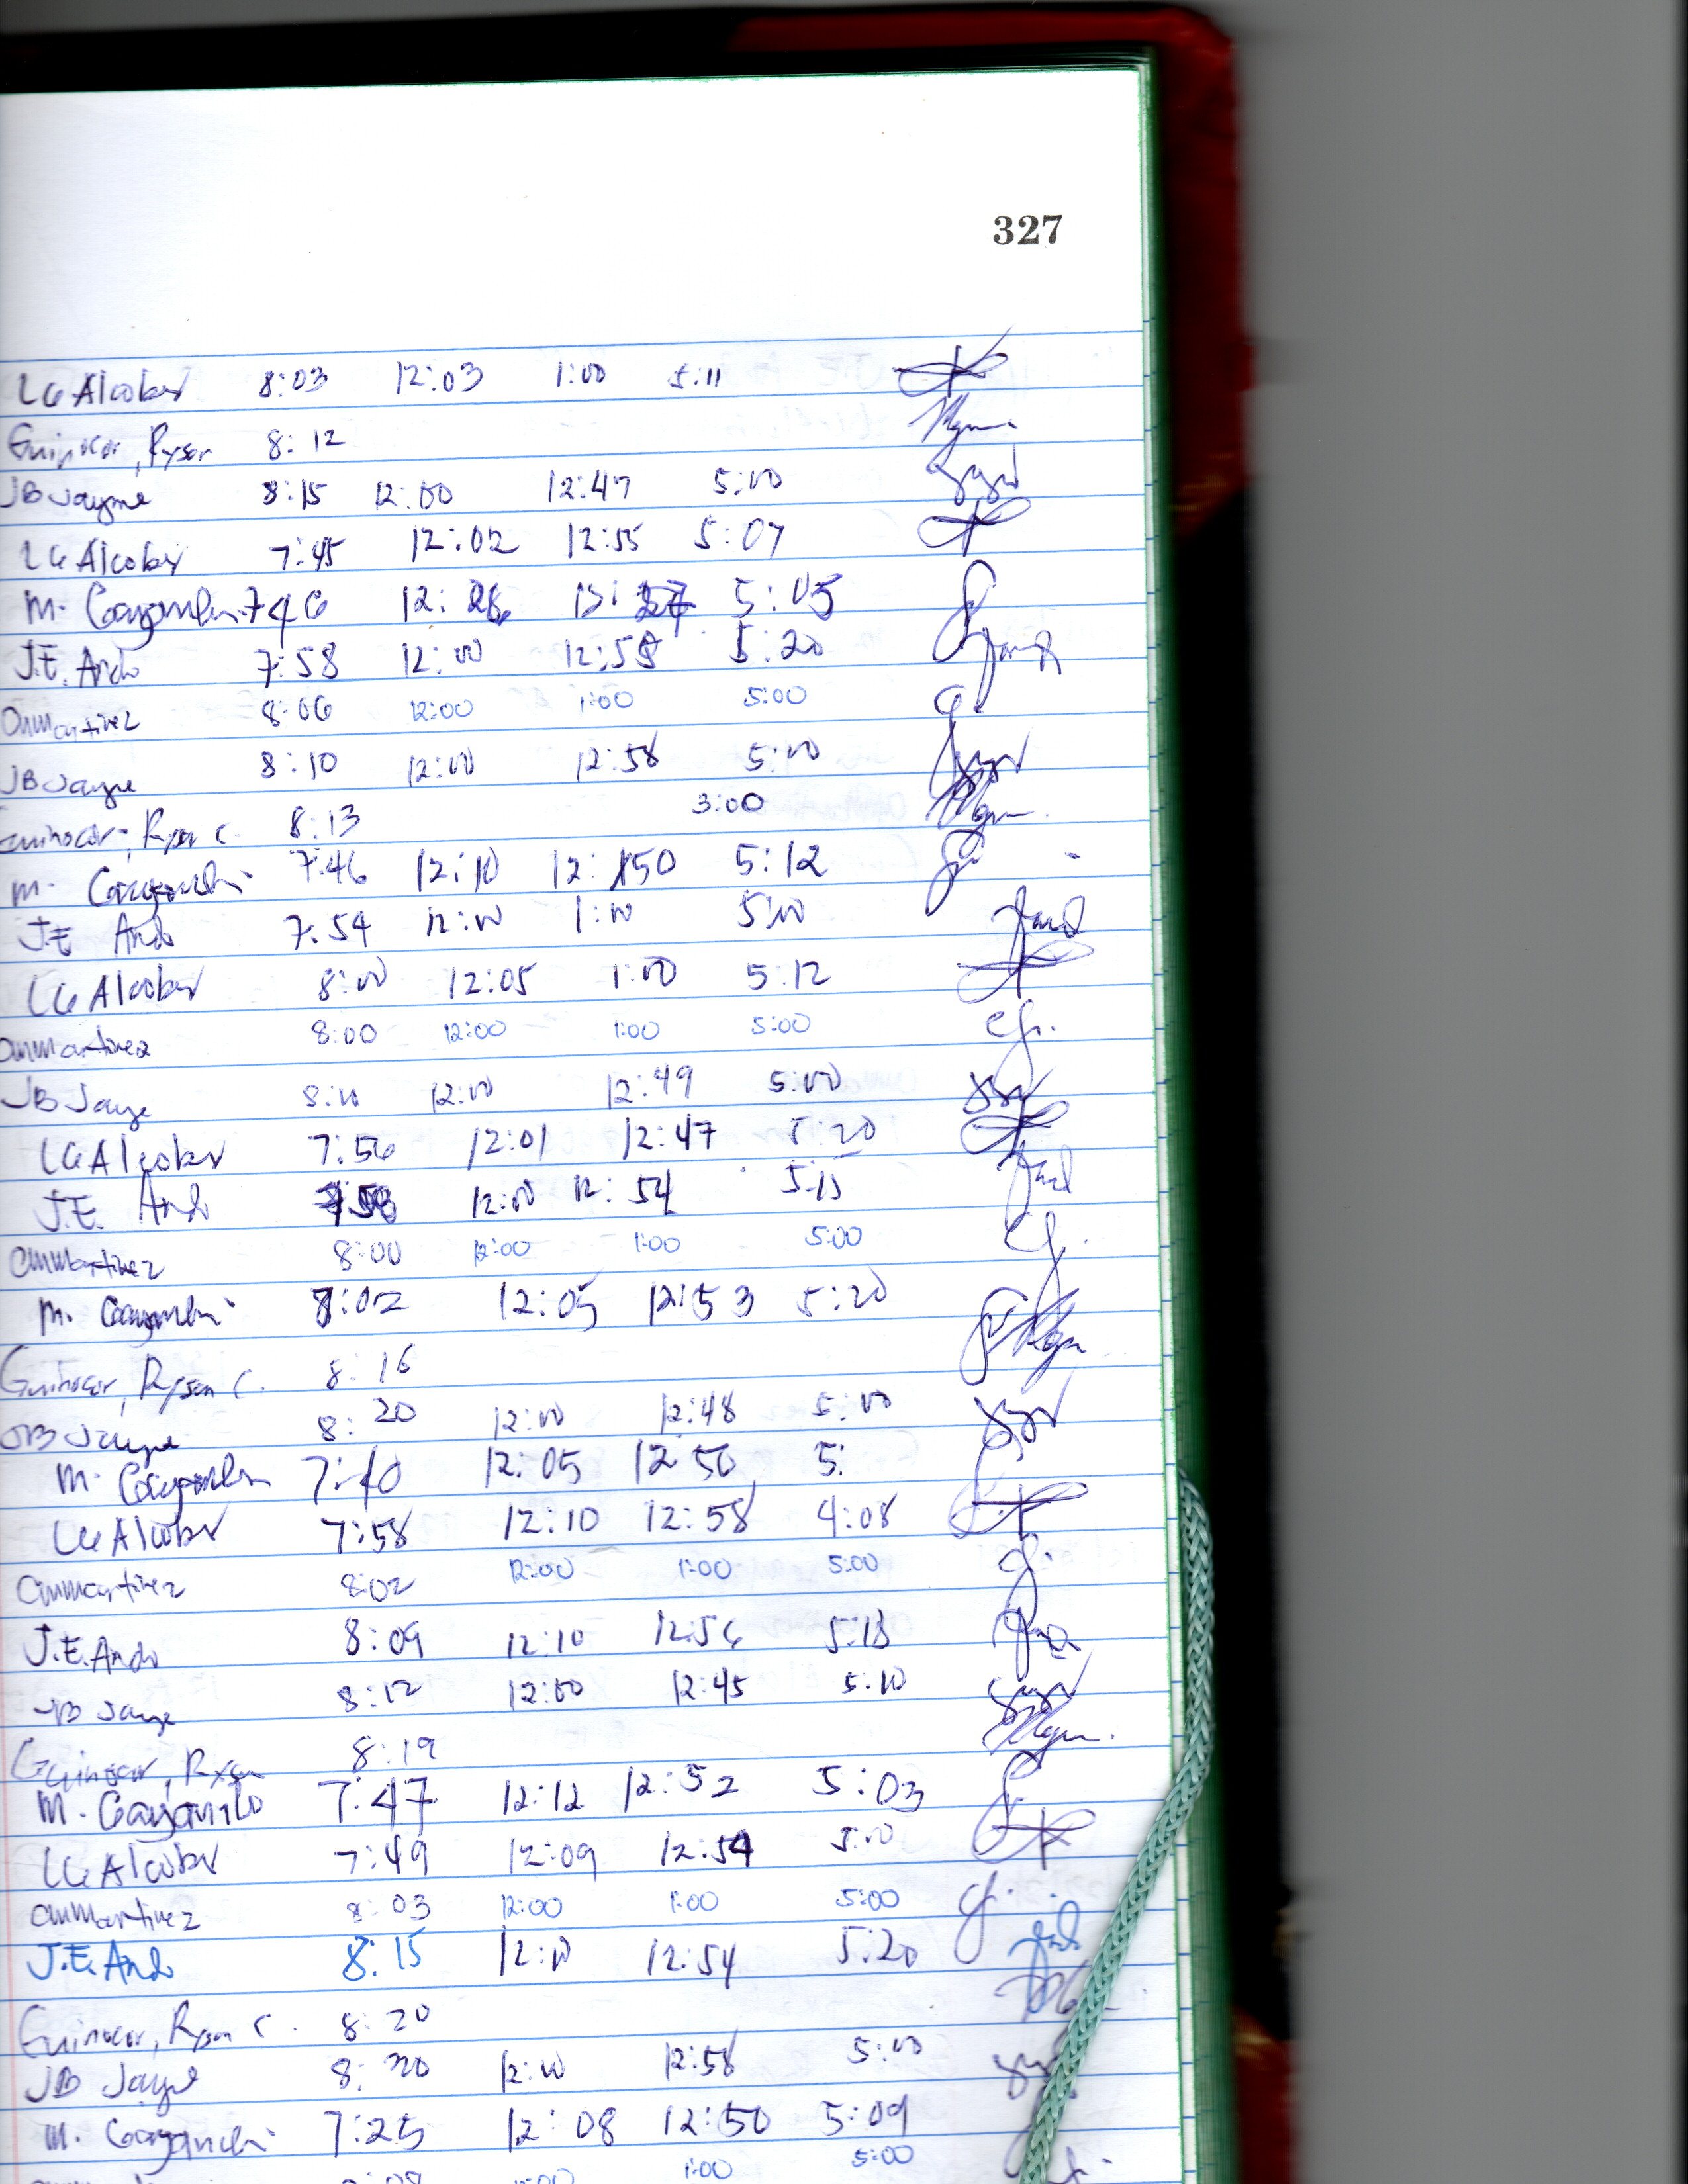 327
LG Alcober 8:03 12:03 1:00 5:11
Guinocor, Ryson 8:12
JB Jayme 8:15 12:00 12:47 5:00
LG Alcober 7:45 12:02 12:55 5:07
M. 746 12: 5:05
J.E. Ando 7:58 12:00 12:58 5:20
OMMartinez 8:06 12:00 1:00 5:00
JB Jayme 8:10 12:00 12:58 5:00
Guinocor, Ryson C. 8:13 3:00
M. 7:46 12:10 12:50 5:12
J.E Ando 7:54 12:00 1:00 5:00
LG Alcober 8:00 12:05 1:00 5:12
OMMartinez 8:00 12:00 1:00 5:00
JB Jayme 8:10 12:00 12:49 5:00
LG Alcober 7:56 12:01 12:47 5:20
J.E. Ando 12:00 12:54 5:15
OMMartinez 8:00 12:00 1:00 5:00
M. 8:02 12:05 12:53 5:20
Guinocor, Ryson C. 8:16
JB Jayme 8:20 12:00 12:48 5:00
M. 7:40 12:05 12 50 5:
LG Alcober 7:58 12:10 12:58 4:08
OMMartinez 8:02 12:00 1:00 5:00
J.E. Ando 8:09 12:10 12:56 5:13
JB Jayme 8:12 12:00 12:45 5:10
Guinocor, Ryson 8:19
M. 7:47 12:12 12:52 5:03
LG Alcober 7:49 12:09 12:54 5:00
OMMartinez 8:03 12:00 1:00 5:00
J.E. Ando 8:15 12:10 12:54 5:20
Guinocor, Ryson C. 8:20
JB Jayme 8:20 12:00 12:58 5:00
M. 7:25 12:08 12:50 5:09
1:00 5:00